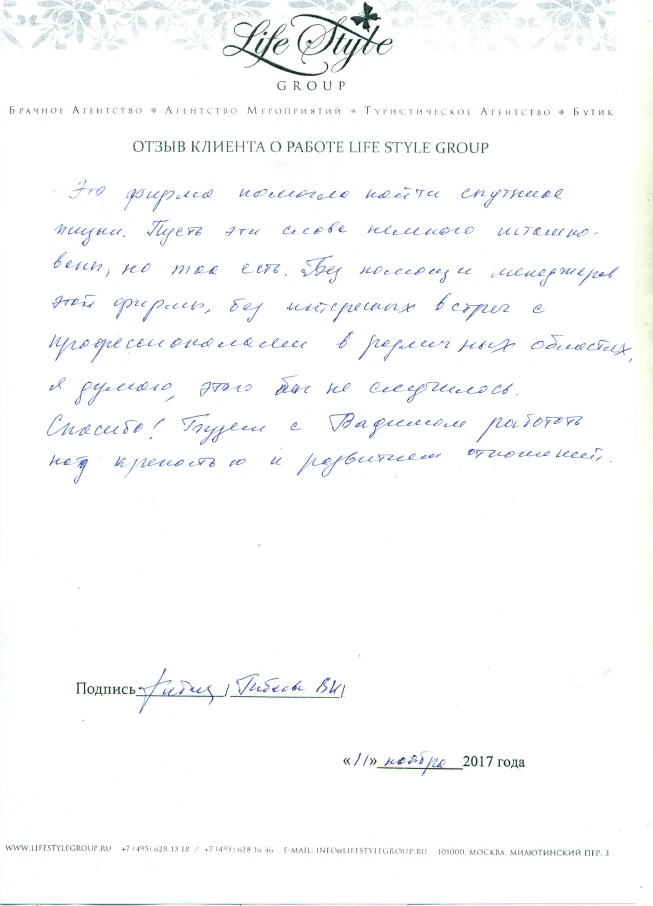 Life Style
GROUP
БРАЧНОЕ АГЕНТСТВО * АГЕНТСТВО МЕРОПРИЯТИЙ * ТУРИСТИЧЕСКОЕ АГЕНТСТВО * БУТИК
ОТЗЫВ КЛИЕНТА О РАБОТЕ LIFE STYLE GROUP
Эта фирма помогла найти спутника
жизни. Пусть эти слова немного штампо-
ваны, но так есть. Без помощи менеджеров
этой фирмы, без интересных встреч с
профессионалами в различных областях,
я думаю, этого бы не случилось.
Спасибо! Будем с Вадимом работать
над крепостью и развитием отношений.
Подпись / ВИ/
«11» ноября 2017 года
WWW.LIFESTYLEGROUP.RU +7 (495) 628 13 18 / +7 (495) 628 16 46 E-MAIL: INFO@LIFESTYLEGROUP.RU 101000, МОСКВА, МИЛЮТИНСКИЙ ПЕР. 3